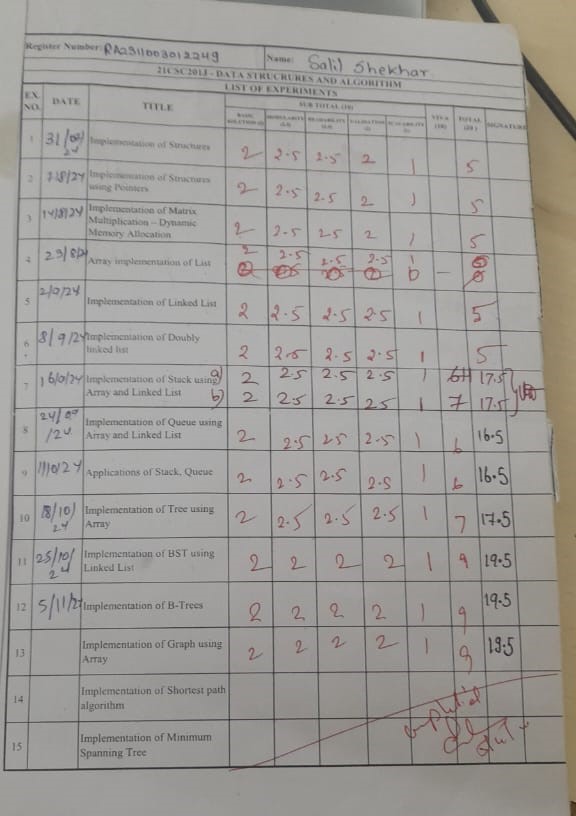 Register Number: RA2311003012249 Name: Salil Shekhar
21CSC201J - DATA STRUCRURES AND ALGORITHM
LIST OF EXPERIMENTS
EX. NO. DATE TITLE SUB TOTAL (10) VIVA (10) TOTAL (20) SIGNATURE
1 Implementation of Structures 2 2.5 2.5 2 1 5
2 Implementation of Structures using Pointers 2 2.5 2.5 2 1 5
3 14/8/24 Implementation of Matrix Multiplication – Dynamic Memory Allocation 2 2.5 2.5 2 1 5
4 Array implementation of List 2 2.5 2.5 2.5 1
5 Implementation of Linked List 2 2.5 2.5 2.5 1 5
6 8/9/24 Implementation of Doubly linked list 2 2.5 2.5 2.5 1 5
7 Implementation of Stack using Array and Linked List a) 2 2.5 2.5 2.5 1 17.5
b) 2 2.5 2.5 2.5 1 7 17.5
8 Implementation of Queue using Array and Linked List 2 2.5 2.5 2.5 1 6 16.5
9 Applications of Stack, Queue 2 2.5 2.5 2.5 1 6 16.5
10 18/10/24 Implementation of Tree using Array 2 2.5 2.5 2.5 1 7 17.5
11 25/10/24 Implementation of BST using Linked List 2 2 2 2 1 9 19.5
12 5/11/24 Implementation of B-Trees 2 2 2 2 1 9 19.5
13 Implementation of Graph using Array 2 2 2 2 1 9 19.5
14 Implementation of Shortest path algorithm
15 Implementation of Minimum Spanning Tree